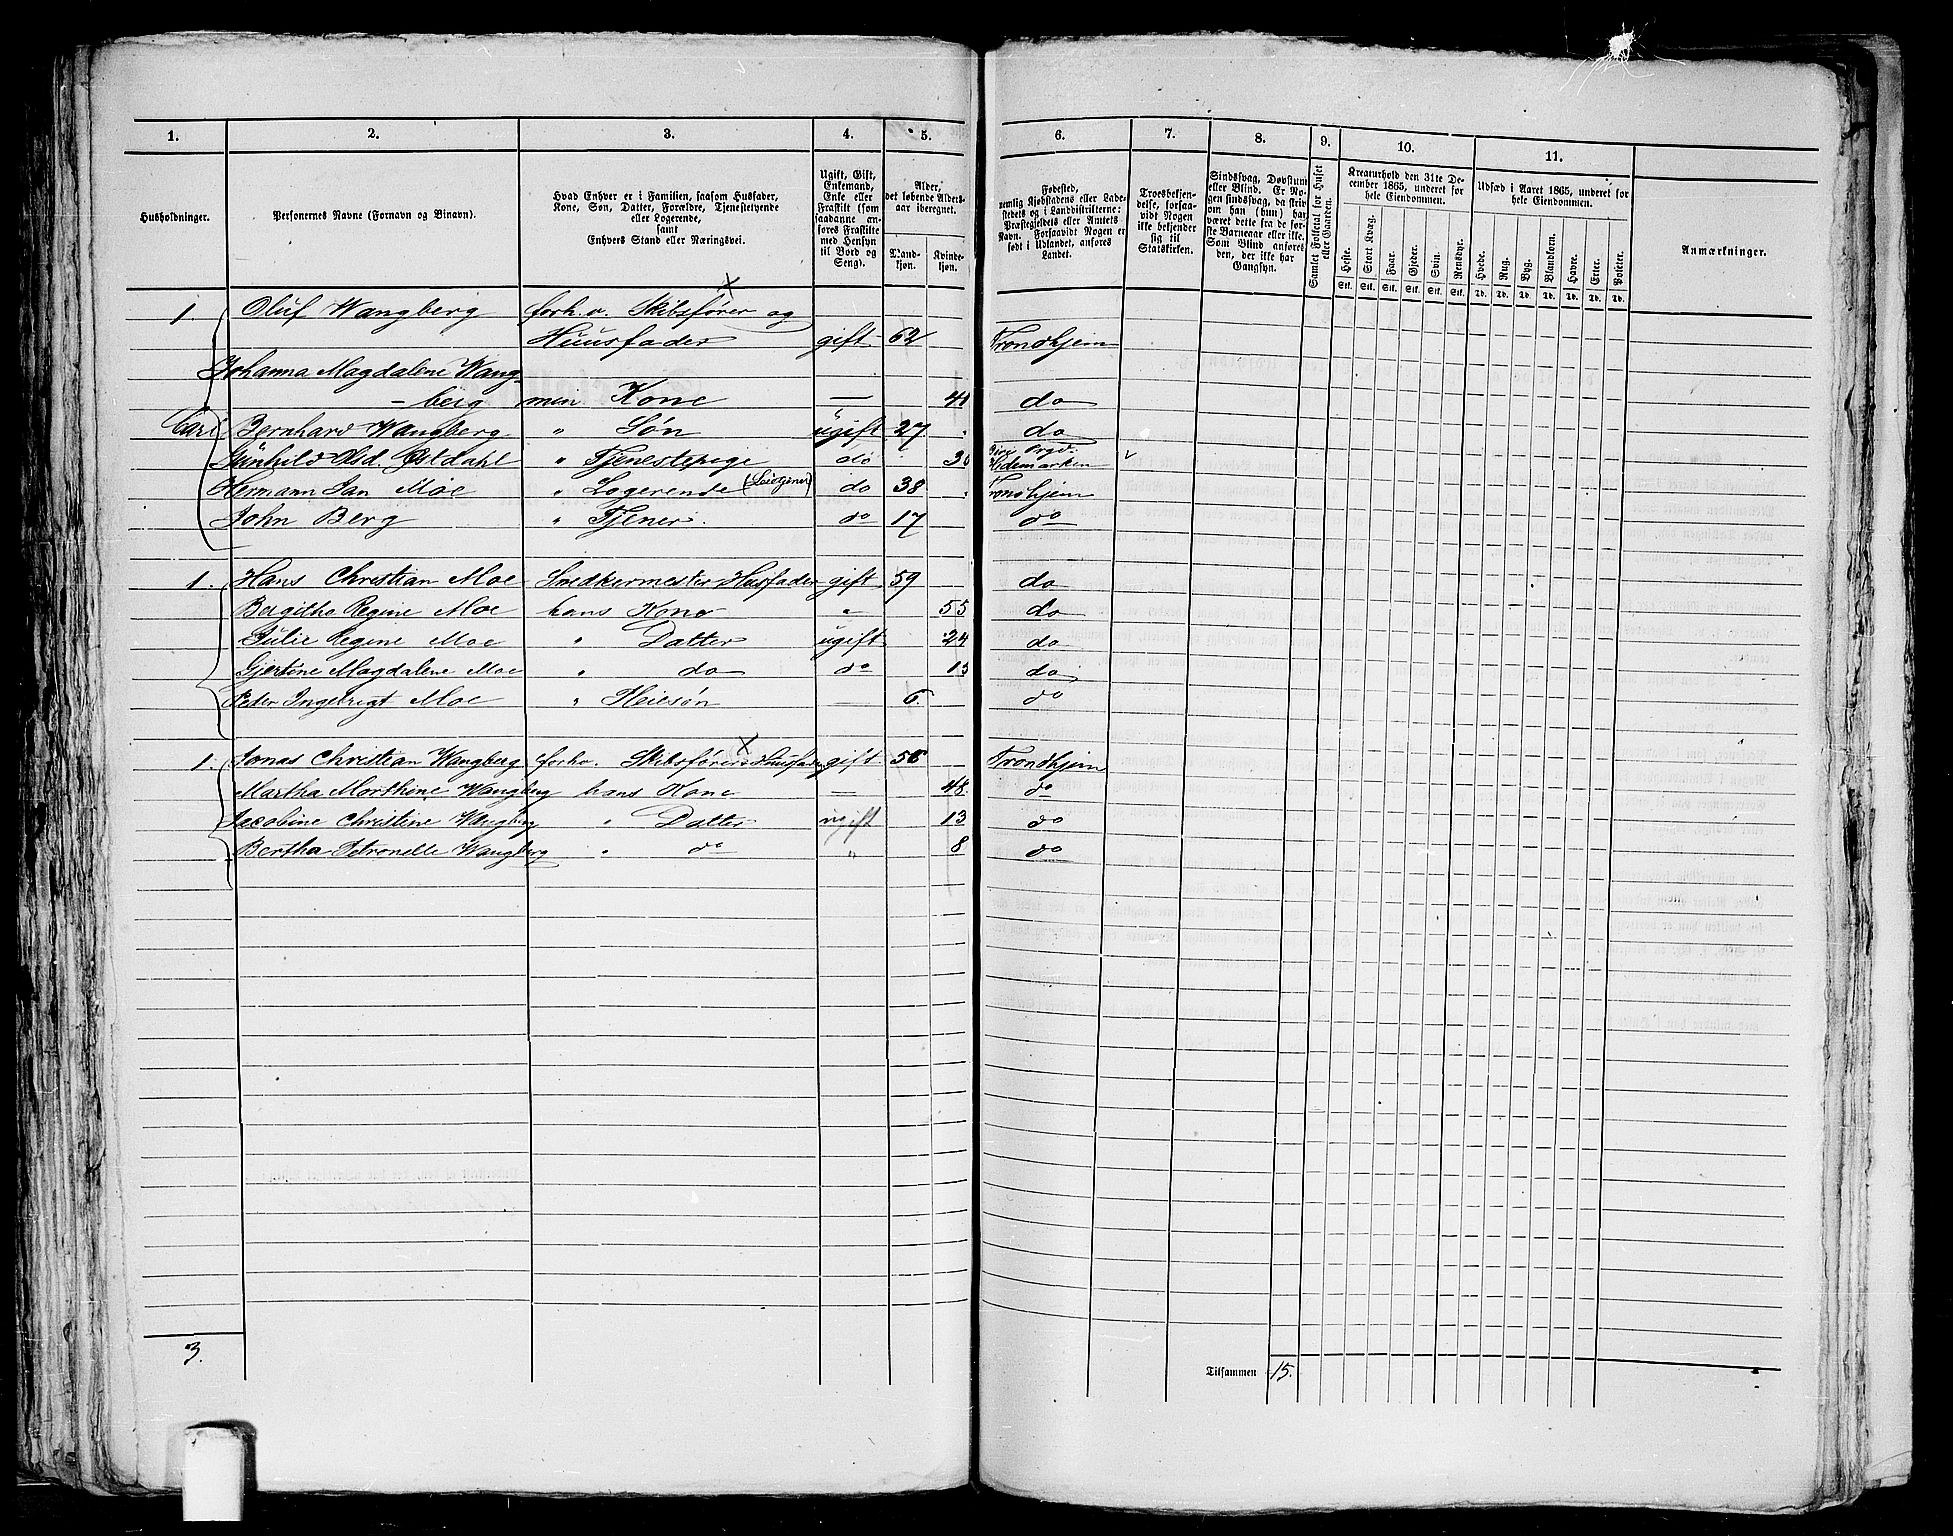 1. 2. 3. 4. 5. 6. 7. 8. 9. 10. 11.
Husholdninger.
Personernes Navne (Fornavn og Binavn).
Hvad Enhver er i Familien, saasom Husfader,
Kone, Søn, Datter, Forældre, Tjenestetyende
eller Logerende,
samt
Enhvers Stand eller Næringsvei.
Ugift, Gift,
Enkemand,
Enke eller
Fraskilt (som
saadanne an-
føres Fraskilte
med Hensyn
til Bord og
Seng).
Alder,
det løbende Alders-
aar iberegnet.
Mand-
kjøn.
Kvinde-
kjøn.
Fødested,
nemlig Kjøbstadens eller Lade-
stedets og i Landdistrikterne:
Præstegjeldets eller Amtets
Navn. Forsaavidt Nogen er
født i Udlandet, anføres
Landet.
Troesbekjen-
delse, forsaa-
vidt Nogen
ikke bekjender
sig til
Statskirken.
Sindssvag, Døvstum
eller Blind. Er No-
gen sindssvag, da skriv
om han (hun) har
været dette fra de før-
ste Barneaar eller ikke.
Som Blind anføres
den, der ikke har
Gangsyn.
Samlet Folketal for Huset
eller Gaarden.
Kreaturhold den 31te De-
cember 1865, underet for
hele Eiendommen.
Heste. Stort Kvæg. Faar. Gjeder. Svin. Rensdyr.
Stk. Stk. Stk. Stk. Stk. Stk.
Udsæd i Aaret 1865, underet for
hele Eiendommen.
Hvede. Rug. Byg. Blandkorn. Havre. Erter. Poteter.
Td. Td. Td. Td. Td. Td. Td.
Anmærkninger.
1. Oluf Wangberg forh.v. Skibsfører og
Huusfader gift 62 Trondhjem
Johanna Magdalene Wang-
- berg men Kone — 41 do
Carl Bernhard Wangberg " Søn ugift 27 do
Gunhild Olsd. Østdahl " Tjenestepige do 30 Hedemarken
Hermann Jan Moe " Logerende do 38 Trondhjem
John Berg " Tjener do 17 do
1. Hans Christian Moe Snedkermester Husfader gift 59 do
Bergitha Regine Moe hans Kone " 55 do
Julie Regine Moe " Datter ugift 24 do
Gjertine Magdalene Moe " do do 15 do
Peder Ingebrigt Moe " Pleiesøn — 6 do
1. Jonas Christian Wangberg forhv. Skibsfører Huusfader gift 56 Trondhjem
Martha Marthine Wangberg hans Kone — 48 do
Jacobine Christine Wangberg " Datter ugift 13 do
Bertha Petronelle Wangberg " do " 8 do
3.
Tilsammen 15.